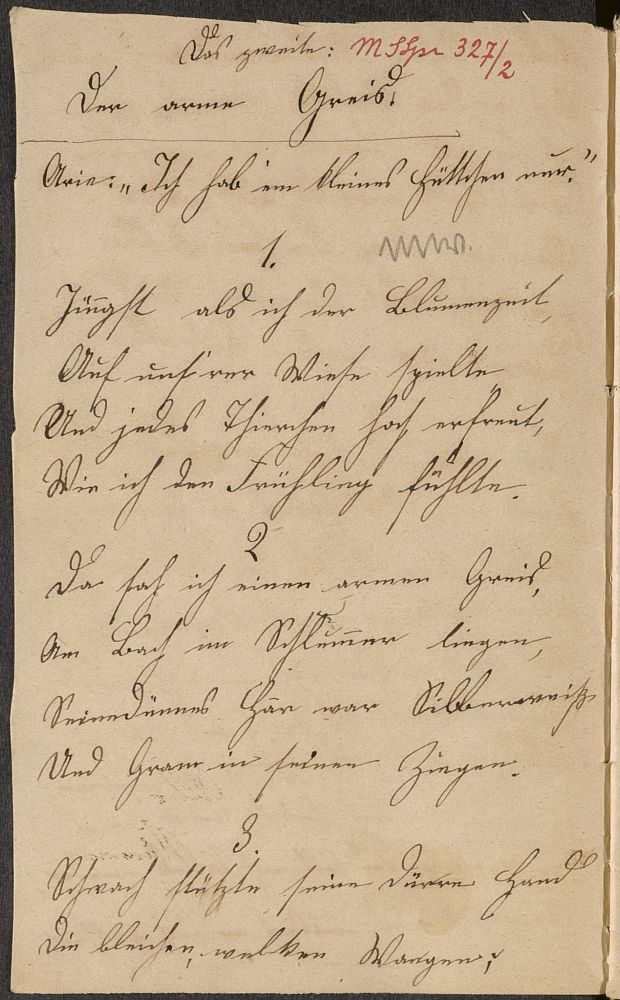 Das zweite: MSHr 327/2
Der arme Greis.
Arie: „Ich hab ein kleines Hüttchen nur.“
1.
Jüngst als ich der Blumenzeit,
Auf uns'rer Wiese spielte
Und jedes Thierchen hoch erfreut,
Wie ich den Frühling fühlte.
2
Da sah ich einen armen Greis,
Am Bach im Schlummer liegen,
Sein dünnes Har war Silberweiß
Und Gram in seinen Zügen.
3.
Schwach stützte seine dürre Hand
Die bleichen, welken Wangen;